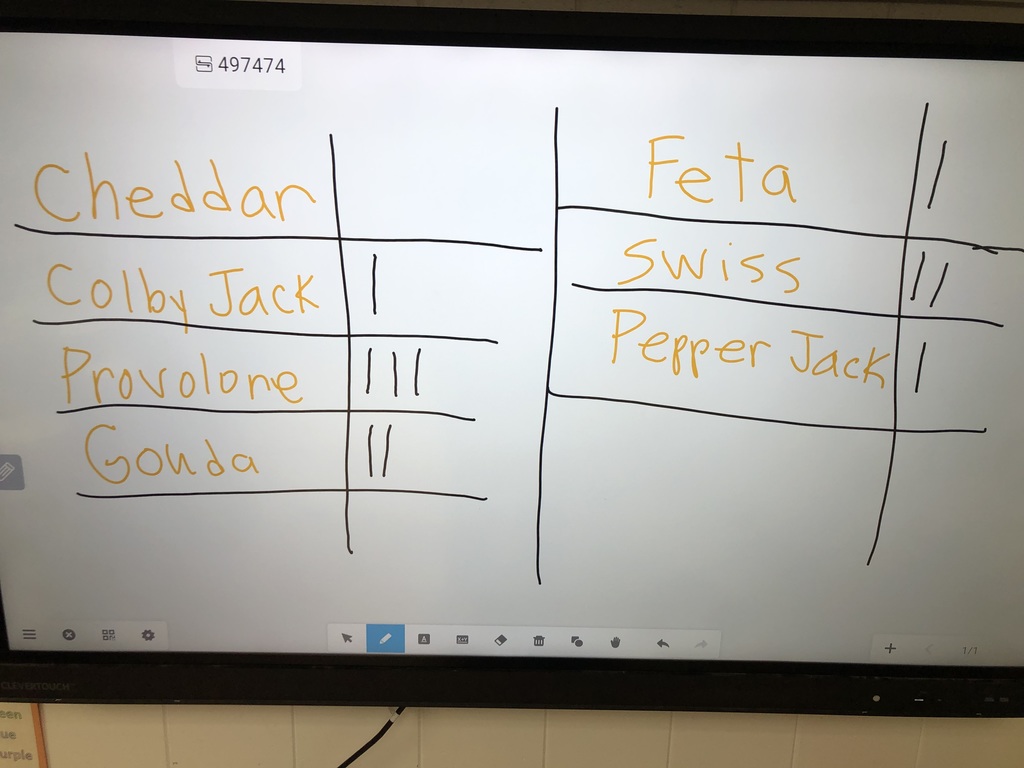 497474
Cheddar
Colby Jack |
Provolone |||
Gouda ||
Feta |
Swiss ||
Pepper Jack |
1/1
CLEVERTOUCH
een
ue
urple